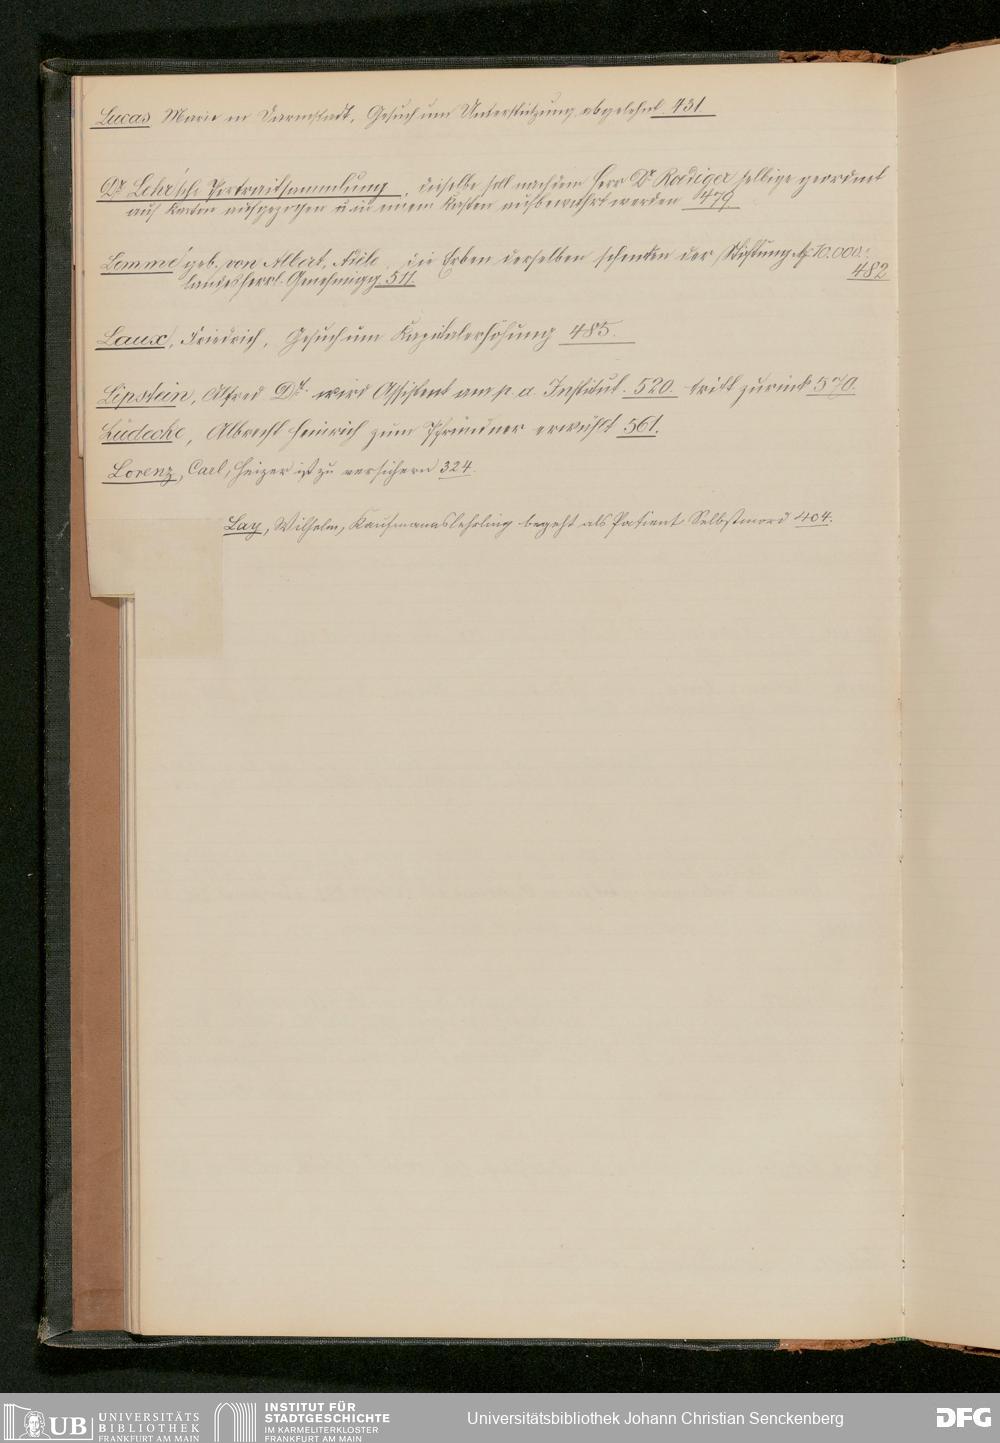 Lucas Marie in Darmstadt, Gesuch um Unterstützung abgelehnt. 431
Dr. Lehr'sche Portraitsammlung, dieselbe soll nachdem Herr Dr. Roediger selbige geordnet
auf Karton aufgezogen u. in einem Kasten aufbewahrt werden 479
Lemmé geb. von Albert, Adele, die Erben derselben schenken der Stiftung M 10.000.-
482
landesherrl. Genehmigg. 511.
Laux, Friedrich, Gesuch um Kapitalerhöhung 485.
Lipstein, Alfred Dr. wird Assistent am p. a. Institut. 520. tritt zurück 570.
Lüdecke, Albrecht Heinrich zum Pfründner erwählt 561.
Lorenz, Carl, Heizer ist zu versichern 324.
Lay, Wilhelm, Kaufmannslehrling begeht als Patient Selbstmord 404.
UB UNIVERSITÄTS
BIBLIOTHEK
FRANKFURT AM MAIN
INSTITUT FÜR
STADTGESCHICHTE
IM KARMELITERKLOSTER
FRANKFURT AM MAIN
Universitätsbibliothek Johann Christian Senckenberg
DFG